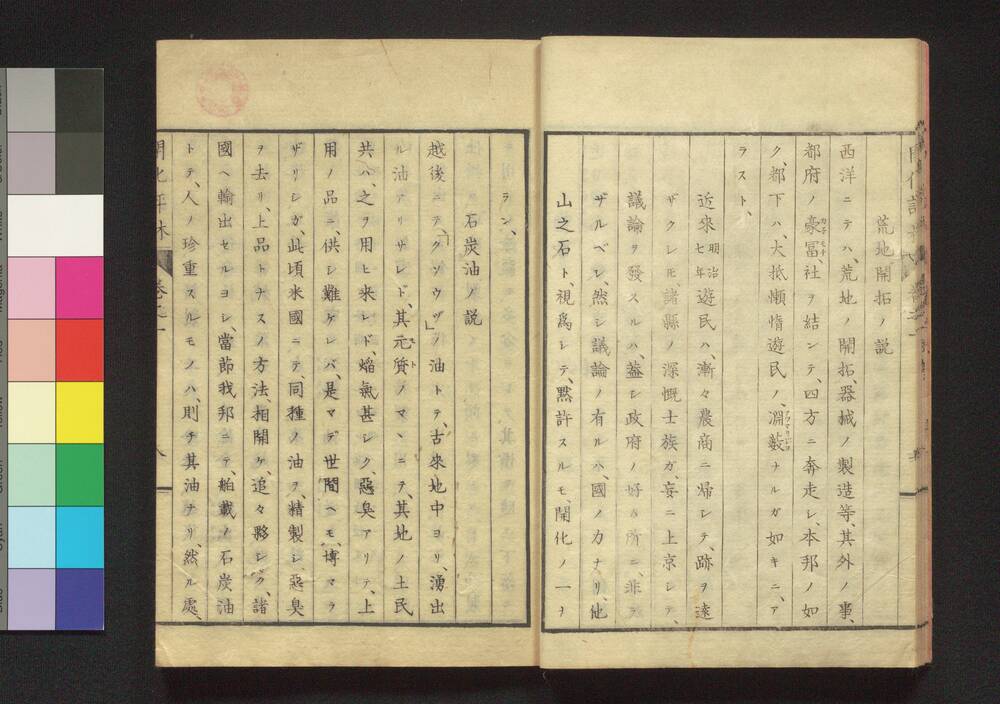 荒地開拓ノ説
西洋ニテハ、荒地ノ開拓、器械ノ製造等、其外ノ事、
都府ノ豪冨、社ヲ結ンテ、四方ニ奔走レ、本邦ノ如
ク、都下ハ、大抵懶惰遊民ノ、淵藪ナルガ如キニ、ア
ラスト、
近來明治七年遊民ハ、漸々農商ニ帰レテ、跡ヲ遠
ザクレ𪜈、諸縣ノ深慨士族ガ、妄ニ上京シテ、
議論ヲ發スルハ、蓋シ政府ノ好ム所ニ非ラ
ザルベシ、然シ議論ノ有ルハ、國ノカナリ、他
山之石ト、視爲レテ、黙許スルモ、開化ノ一ヲ
ラン、
石炭油ノ説
越後ニテ、「クソウヅ」ノ油トテ、古來地中ヨリ、湧出
ル油アリサレド、其元質ノマヽニテ、其地ノ土民
共ハ、之ヲ用ヒ来レド、焔氣甚レク、惡臭アリテ、上
用ノ品ニ、供シ難ケレバ、是マデ世間ヘモ、博マラ
ザリシガ、此頃米國ニテ、同種ノ油ヲ、精製シ、惡臭
ヲ去リ、上品トナスノ方法、相開ケ、追々夥シク、諸
國ヘ輸出セルヨシ、當節我邦ニテ、舶載ノ石炭油
トテ、人ノ珍重スルモノハ、則チ其油ナリ、然ル處、